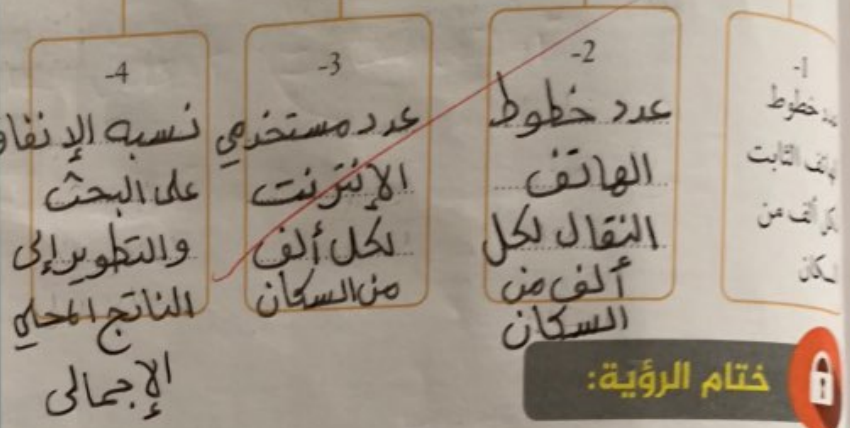 -1
عدد خطوط
الهاتف الثابت
لكل ألف من
السكان
-2
عدد خطوط
الهاتف
النقال لكل
ألف من
السكان
-3
عدد مستخدمي
الإنترنت
لكل ألف
من السكان
-4
نسبه الإنفاق
على البحث
والتطوير إلى
الناتج المحلي
الإجمالى
ختام الرؤية: